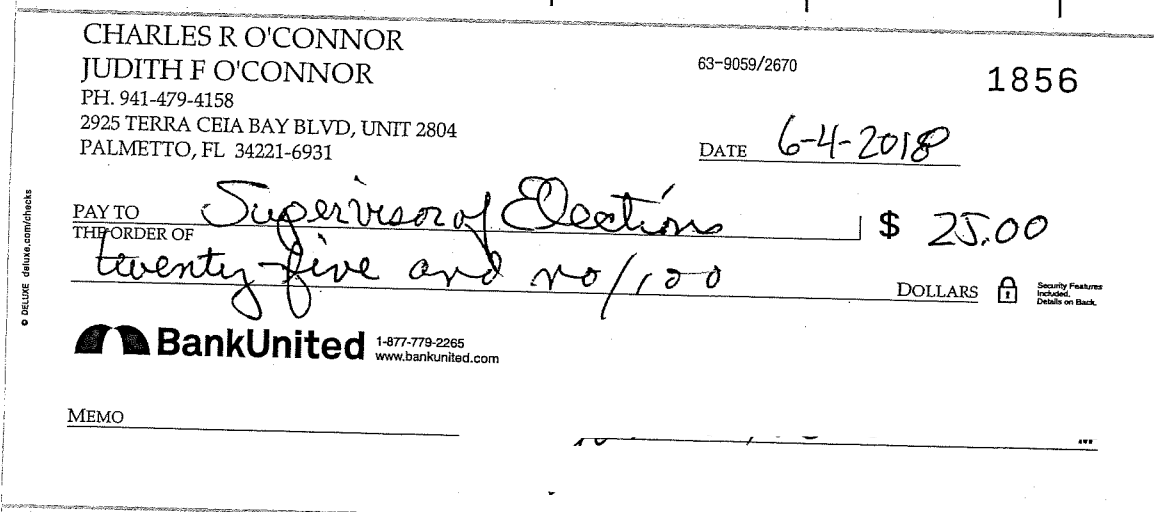 CHARLES R O'CONNOR
JUDITH F O'CONNOR
PH. 941-479-4158
2925 TERRA CEIA BAY BLVD, UNIT 2804
PALMETTO, FL 34221-6931
63-9059/2670
1856
DATE 6-4-2018
PAY TO THE ORDER OF Supervisor of Elections $ 25.00
twenty-five and no/100 DOLLARS
Security Features
Included.
Details on Back.
© DELUXE deluxe.com/checks
BankUnited
1-877-779-2265
www.bankunited.com
MEMO